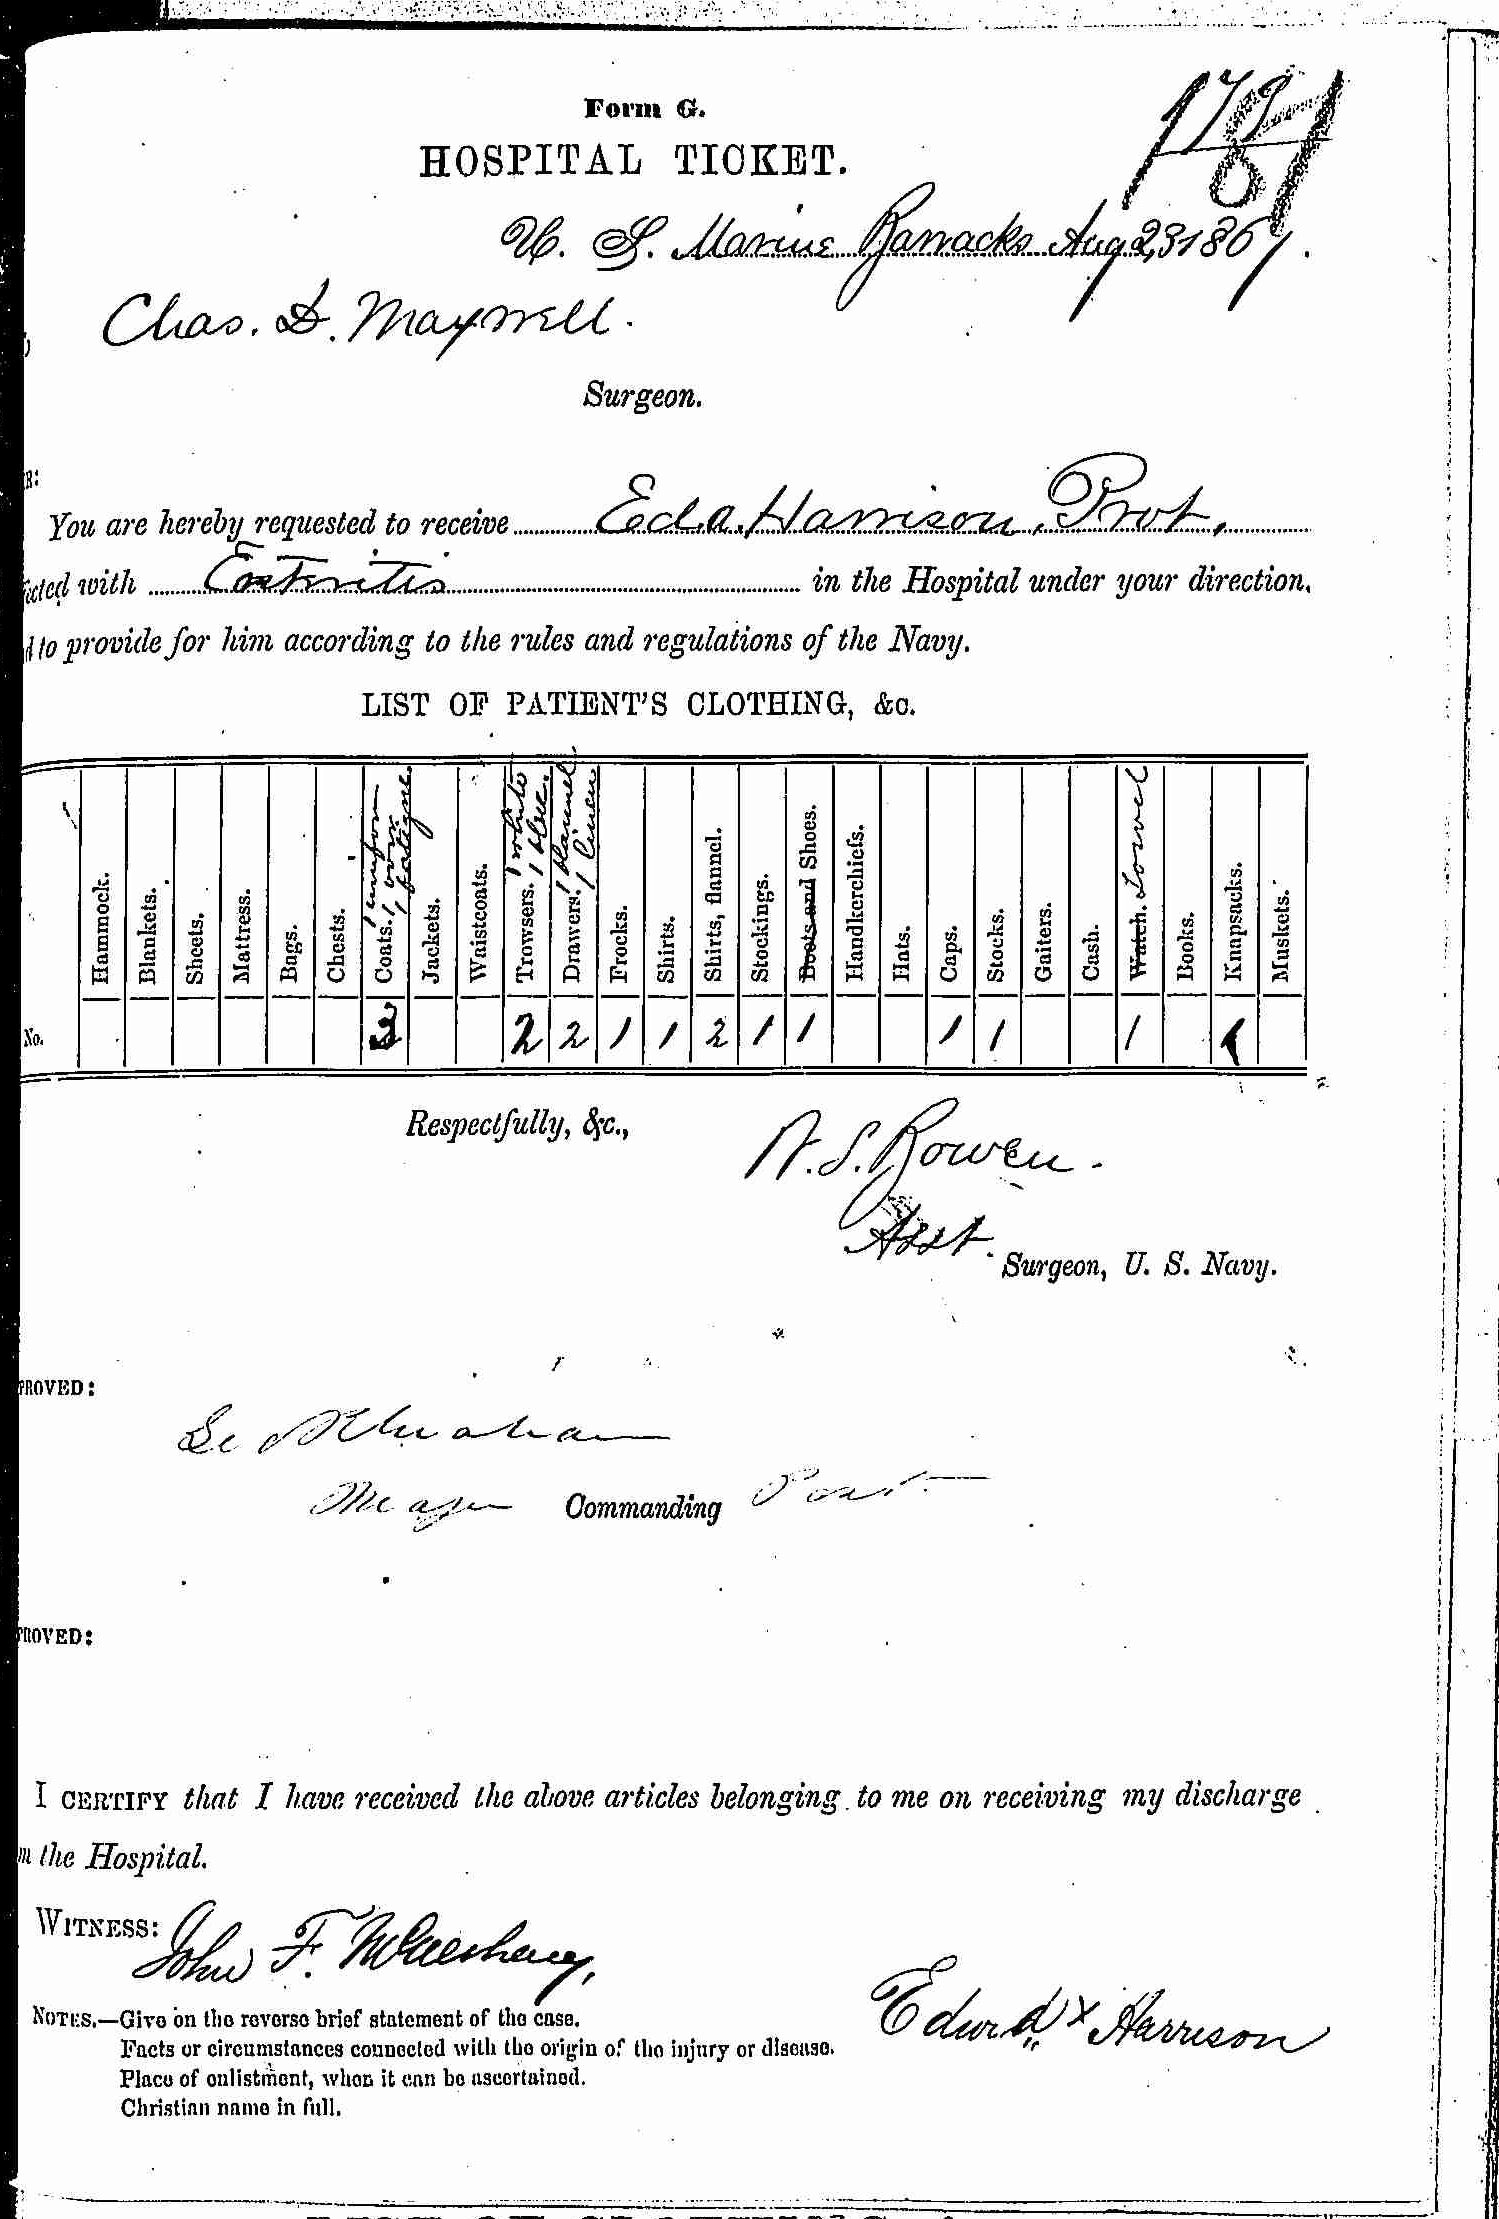 Form G.
HOSPITAL TICKET.
U. S. Marine Barracks Aug 23 1867.
Chas. D. Maxwell.
Surgeon.
R:
You are hereby requested to receive Ed. A. Harrison, Prvt,
icted with Enteritis in the Hospital under your direction,
d to provide for him according to the rules and regulations of the Navy.
LIST OF PATIENT'S CLOTHING, &c.
Hammock. Blankets. Sheets. Mattress. Bags. Chests. Coats. 1 uniform 1 over 1 fatigue. Jackets. Waistcoats. Trowsers. 1 white 1 blue. Drawers. 1 flannel 1 linen Frocks. Shirts. Shirts, flannel. Stockings. Boots and Shoes. Handkerchiefs. Hats. Caps. Stocks. Gaiters. Cash. Watch. Towel Books. Knapsacks. Muskets.
No. 3 2 2 1 1 2 1 1 1 1 1 1
Respectfully, &c.,
A. S. Bowen.
Asst. Surgeon, U. S. Navy.
PROVED:
Major Commanding Post
PROVED:
I CERTIFY that I have received the above articles belonging to me on receiving my discharge
m the Hospital.
WITNESS: John F.
Edwrd x Harrison
NOTES.—Give on the reverse brief statement of the case.
Facts or circumstances connected with the origin of the injury or disease.
Place of enlistment, when it can be ascertained.
Christian name in full.